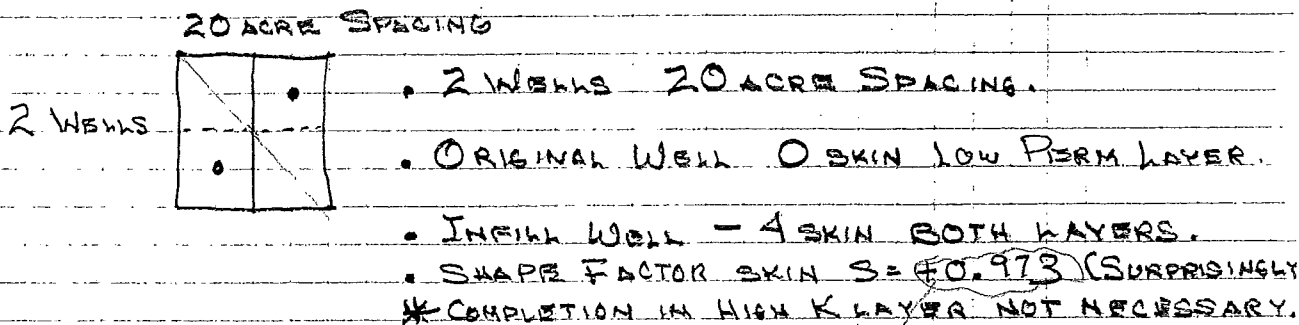 20 ACRE SPACING
2 WELLS
• 2 WELLS 20 ACRE SPACING.
• ORIGINAL WELL O SKIN LOW PERM LAYER.
• INFILL WELL - 4 SKIN BOTH LAYERS.
• SHAPE FACTOR SKIN S= +0.973 (SURPRISINGLY
* COMPLETION IN HIGH K LAYER NOT NECESSARY.